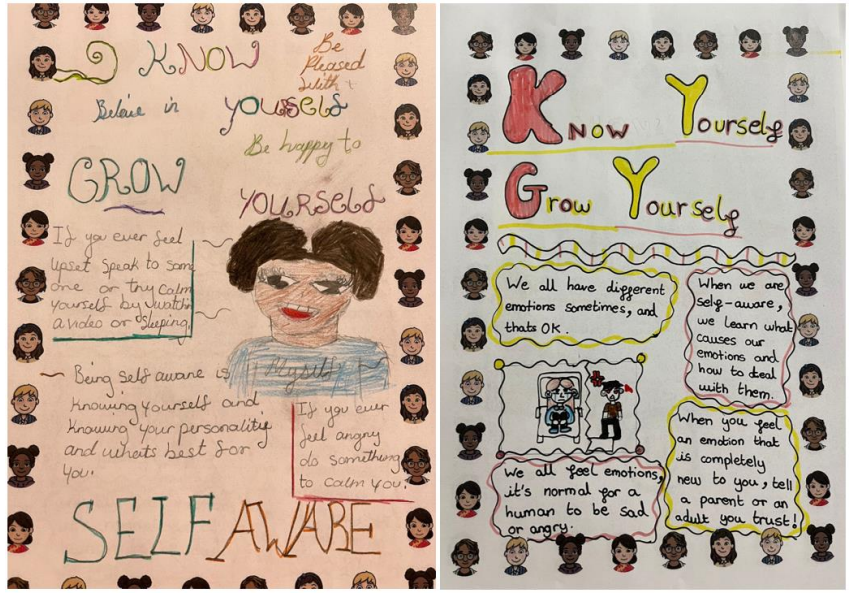 KNOW
Be
Pleased
with
in
YOURSELF
Be happy to
GROW
YOURSELF
If you ever feel
upset speak to some
one or try calm
yourself by watchin
a video or sleeping.
Myself
Being self aware is
Knowing yourself and
Knowing your personality
and whats best for
you.
If you ever
feel angry
do something
to calm you.
SELF AWARE
Know Yourself
Grow Yourself
We all have different
emotions sometimes, and
thats OK.
When we are
self-aware,
we learn what
causes our
emotions and
how to deal
with them.
We all feel emotions,
it's normal for a
human to be sad
or angry.
When you feel
an emotion that
is completely
new to you, tell
a parent or an
adult you trust!